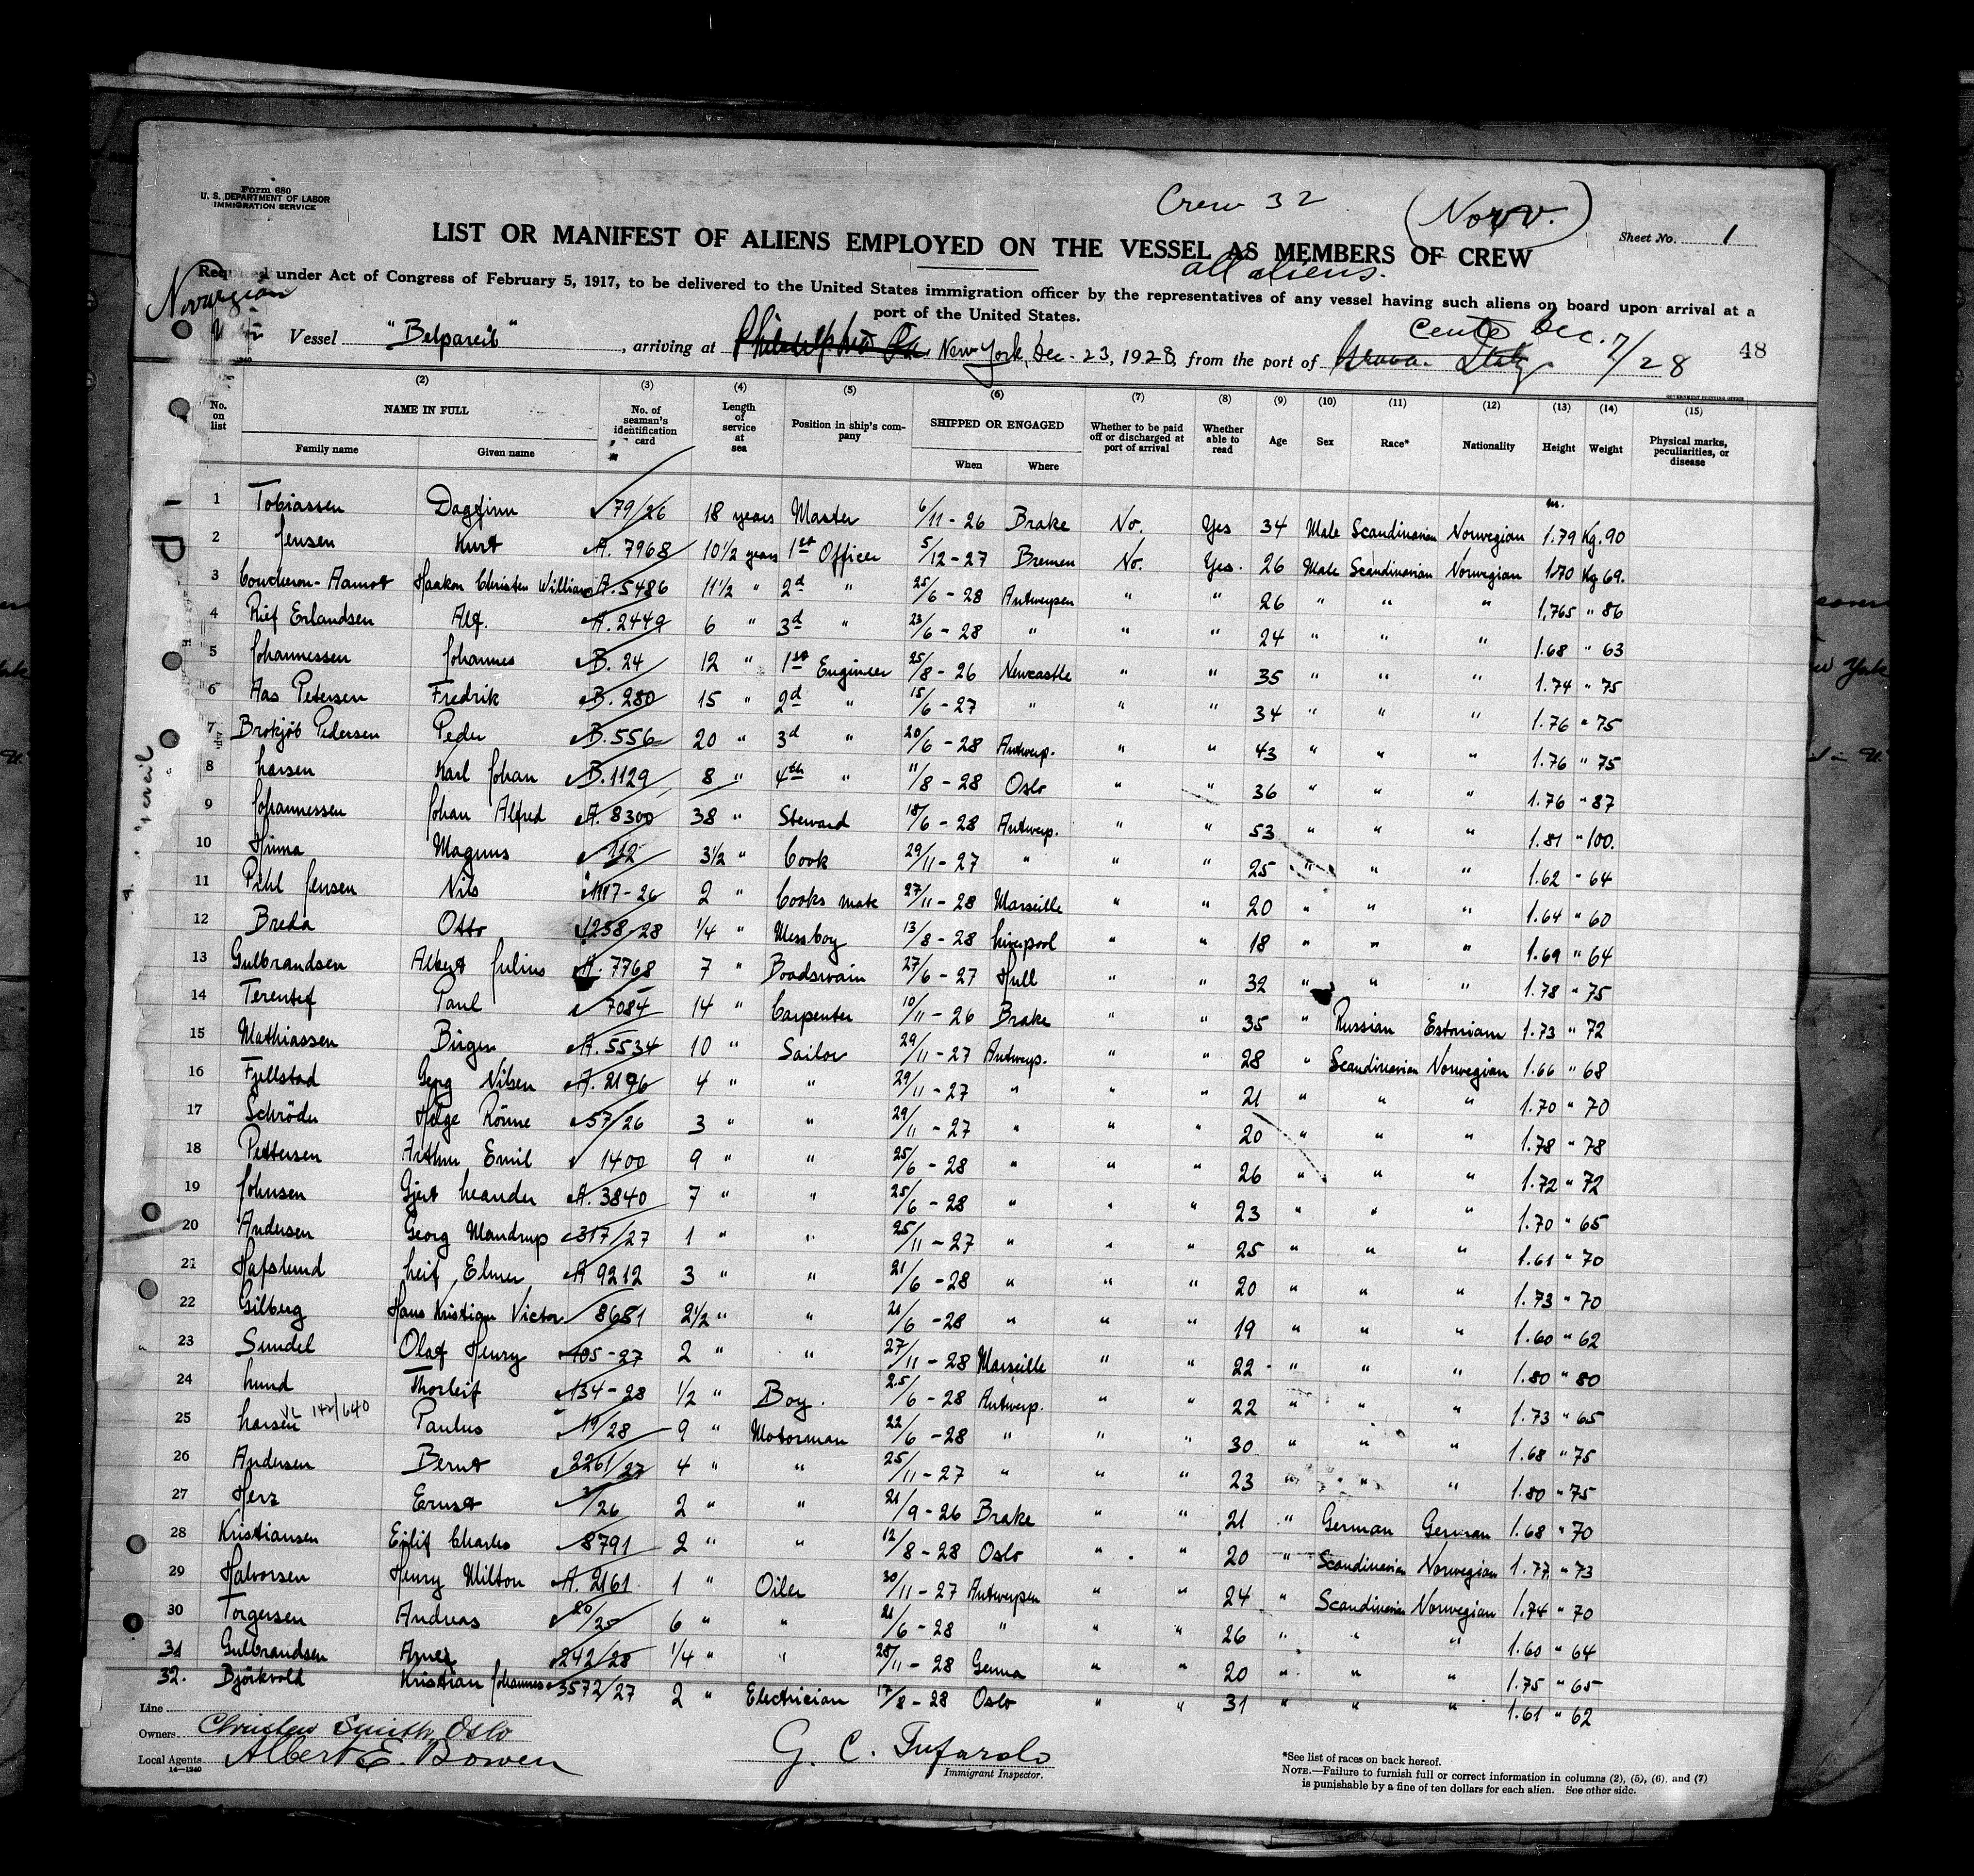 Form 680
U. S. DEPARTMENT OF LABOR
IMMIGRATION SERVICE
Crew 32 (Norw.)
LIST OR MANIFEST OF ALIENS EMPLOYED ON THE VESSEL AS MEMBERS OF CREW
Sheet No. 1
all aliens.
Required under Act of Congress of February 5, 1917, to be delivered to the United States immigration officer by the representatives of any vessel having such aliens on board upon arrival at a
port of the United States.
Norwegian
Vessel "Belpareil", arriving at Philadelphia Pa New York, Dec. 23, 1928, from the port of Genova Italy Ceuta Dec. 7/28
48
(2) (3) (4) (5) (6) (7) (8) (9) (10) (11) (12) (13) (14) (15)
No. on list NAME IN FULL Family name Given name No. of seaman's identification card Length of service at sea Position in ship's company SHIPPED OR ENGAGED When Where Whether to be paid off or discharged at port of arrival Whether able to read Age Sex Race* Nationality Height Weight Physical marks, peculiarities, or disease
1 Tobiassen Dagfinn 79/26 18 years Master 6/11-26 Brake No. Yes 34 Male Scandinavian Norwegian m. 1.79 Kg. 90
2 Jensen Kurt A. 7968 10 1/2 years 1st Officer 5/12-27 Bremen No. Yes. 26 Male Scandinavian Norwegian 1.70 Kg 69.
3 Coucheron-Aamot Haakon Christen William A. 5486 11 1/2 " 2d " 25/6-28 Antwerpen " " 26 " " " 1.765 " 86
4 Rief Erlandsen Alf. A. 2449 6 " 3d " 23/6-28 " " " 24 " " " 1.68 " 63
5 Johannessen Johannes B. 24 12 " 1st Engineer 25/8-26 Newcastle " " 35 " " " 1.74 " 75
6 Aas Petersen Fredrik B. 280 15 " 2d " 15/6-27 " " " 34 " " " 1.76 " 75
7 Brokjöb Pedersen Peder B. 556 20 " 3d " 20/6-28 Antwerp. " " 43 " " " 1.76 " 75
8 Larsen Karl Johan B. 1129 8 " 4th " 11/8-28 Oslo " " 36 " " " 1.76 " 87
9 Johannessen Johan Alfred A. 8300 38 " Steward 18/6-28 Antwerp. " " 53 " " " 1.81 " 100.
10 Hinna Magnus 112 3 1/2 " Cook 29/11-27 " " " 25 " " " 1.62 " 64
11 Pihl Jensen Nils 1117-26 2 " Cooks mate 27/11-28 Marseille " " 20 " " " 1.64 " 60
12 Breda Otto 1258/28 1/4 " Messboy 13/8-28 Liverpool " " 18 " " " 1.69 " 64
13 Gulbrandsen Albert Julius A. 7768 7 " Boadswain 27/6-27 Hull " " 32 " " " 1.78 " 75
14 Terentef Paul 7084 14 " Carpenter 10/11-26 Brake " " 35 " Russian Estonian 1.73 " 72
15 Mathiassen Birger A. 5534 10 " Sailor 29/11-27 Antwerp. " " 28 " Scandinavian Norwegian 1.66 " 68
16 Fjellstad Georg Nilsen A. 2196 4 " " 29/11-27 " " " 21 " " " 1.70 " 70
17 Schröder Helge Rönne 57/26 3 " " 29/11-27 " " " 20 " " " 1.78 " 78
18 Pettersen Arthur Emil 1400 9 " " 25/6-28 " " " 26 " " " 1.72 " 72
19 Johnsen Gjert Leander A. 3840 7 " " 25/6-28 " " " 23 " " " 1.70 " 65
20 Andersen Georg Mandrup 317/27 1 " " 25/11-27 " " " 25 " " " 1.61 " 70
21 Hafslund Leif Elmer A 9212 3 " " 21/6-28 " " " 20 " " " 1.73 " 70
22 Gilberg Hans Kristian Victor 8651 2 1/2 " " 21/6-28 " " " 19 " " " 1.60 " 62
23 Sundel Olaf Henry 405-27 2 " " 27/11-28 Marseille " " 22 " " " 1.80 " 80
24 Lund Thorleif 134-28 1/2 " Boy. 25/6-28 Antwerp. " " 22 " " " 1.73 " 65
25 Larsen Paulus 19/28 9 " Motorman 22/6-28 " " " 30 " " " 1.68 " 75
26 Andersen Bernt 2261/27 4 " " 25/11-27 " " " 23 " " " 1.80 " 75
27 Herz Ernst /26 2 " " 21/9-26 Brake " " 21 " German German 1.68 " 70
28 Kristiansen Eilif Charles 8791 2 " " 12/8-28 Oslo " " 20 " Scandinavian Norwegian 1.77 " 73
29 Halvorsen Henry Milton A. 2161 1 " Oiler 30/11-27 Antwerpen " " 24 " Scandinavian Norwegian 1.74 " 70
30 Torgersen Andreas 20/25 6 " " 21/6-28 " " " 26 " " " 1.60 " 64
31 Gulbrandsen Arne 242/28 1/4 " " 28/11-28 Genua " " 20 " " " 1.75 " 65
32. Björkvold Kristian Johannes 3572/27 2 " Electrician 17/8-28 Oslo " " 31 " " " 1.61 " 62
Line
Owners Christen Smith, Oslo
Local Agents Albert E. Bowen
14—1240
G. C. Tufarolo
Immigrant Inspector.
*See list of races on back hereof.
NOTE.—Failure to furnish full or correct information in columns (2), (5), (6), and (7)
is punishable by a fine of ten dollars for each alien. See other side.